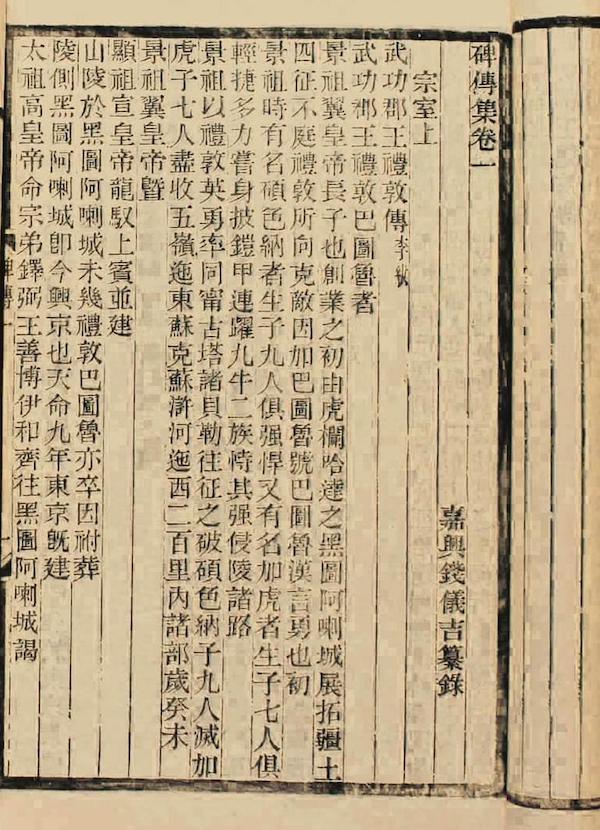 碑傳集卷一
嘉興錢儀吉纂錄
宗室上
武功郡王禮敦傳李紱
武功郡王禮敦巴圖魯者
景祖翼皇帝長子也創業之初由虎欄哈達之黑圖阿喇城展拓疆土
四征不庭禮敦所向克敵因加巴圖魯號巴圖魯漢言勇也初
景祖時有名碩色納者生子九人俱强悍又有名加虎者生子七人俱
輕捷多力嘗身披鎧甲連躍九牛二族恃其强侵陵諸路
景祖以禮敦英勇率同甯古塔諸貝勒往征之破碩色納子九人滅加
虎子七人盡收五嶺迤東蘇克蘇滸河迤西二百里內諸部歲癸未
景祖翼皇帝曁
顯祖宣皇帝龍馭上賓並建
山陵於黑圖阿喇城未幾禮敦巴圖魯亦卒因祔葬
陵側黑圖阿喇城卽今興京也天命九年東京旣建
太祖高皇帝命宗弟鐸弼王善博伊和齊往黑圖阿喇城謁
碑傳一